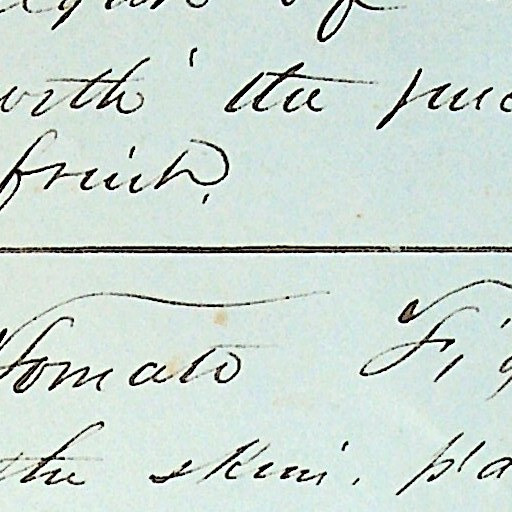 of
the
fruit.
Tomato Fig
the skin. pla